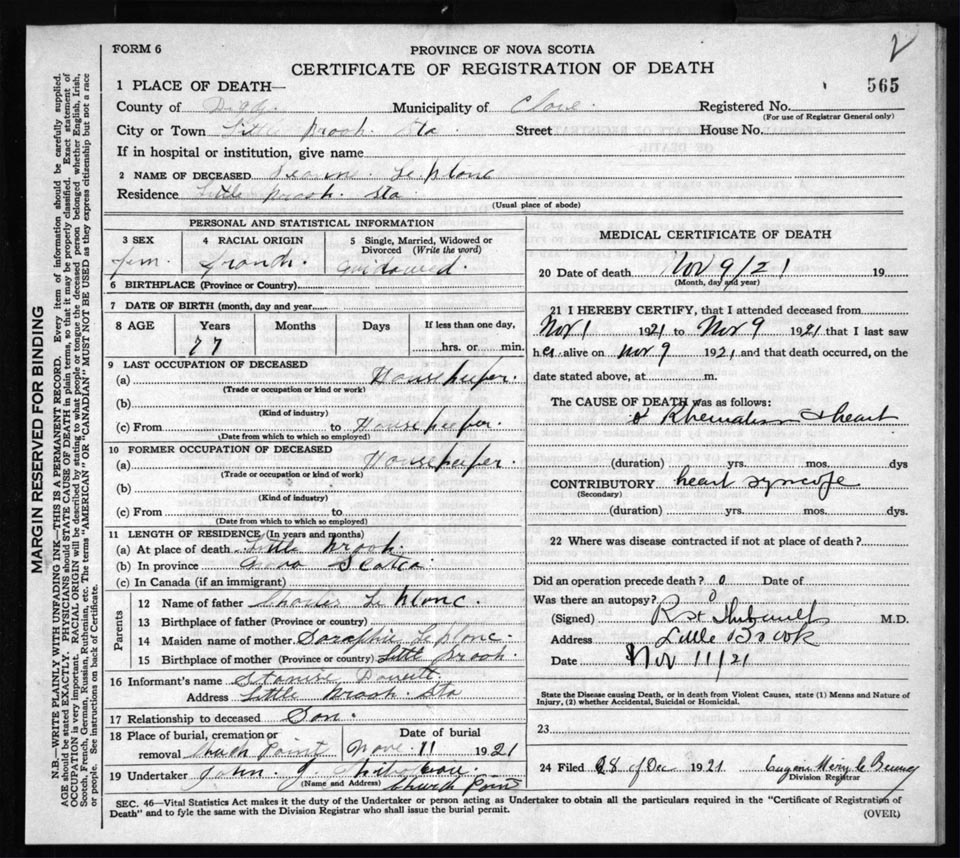 2
FORM 6
PROVINCE OF NOVA SCOTIA
CERTIFICATE OF REGISTRATION OF DEATH
565
1 PLACE OF DEATH—
County of Digby Municipality of Clare. Registered No.
(For use of Registrar General only)
City or Town Little Brook Sta Street House No.
If in hospital or institution, give name
2 NAME OF DECEASED Le blanc
Residence Little Brook Sta
(Usual place of abode)
PERSONAL AND STATISTICAL INFORMATION
3 SEX 4 RACIAL ORIGIN 5 Single, Married, Widowed or Divorced (Write the word)
fem. french.
6 BIRTHPLACE (Province or Country)
7 DATE OF BIRTH (month, day and year
8 AGE Years Months Days If less than one day,
77 hrs. or min.
9 LAST OCCUPATION OF DECEASED
(a) Housekeeper.
(Trade or occupation or kind of work)
(b)
(Kind of industry)
(c) From to Housekeeper.
(Date from which to which so employed)
10 FORMER OCCUPATION OF DECEASED
(a) Housekeeper.
(Trade or occupation or kind of work)
(b)
(Kind of industry)
(c) From to
(Date from which to which so employed)
11 LENGTH OF RESIDENCE (In years and months)
(a) At place of death Little Brook.
(b) In province Nova Scotia
(c) In Canada (if an immigrant)
Parents
12 Name of father Charles Le blanc.
13 Birthplace of father (Province or country)
14 Maiden name of mother Le blanc.
15 Birthplace of mother (Province or country) Little Brook.
16 Informant's name
Address Little Brook Sta
17 Relationship to deceased Son.
18 Place of burial, cremation or removal Church Point Date of burial Nove. 11 1921
19 Undertaker John
(Name and Address) Church Point
MEDICAL CERTIFICATE OF DEATH
20 Date of death Nov 9/21 19
(Month, day and year)
21 I HEREBY CERTIFY, that I attended deceased from
Nov 1 1921 to Nov 9 1921 that I last saw
her alive on Nov 9 1921 and that death occurred, on the
date stated above, at m.
The CAUSE OF DEATH was as follows:
of Rheumatism & heart
(duration) yrs. mos. dys
CONTRIBUTORY heart syncope
(Secondary)
(duration) yrs. mos. dys.
22 Where was disease contracted if not at place of death?
Did an operation precede death? 0 Date of
Was there an autopsy? 0
(Signed) M.D.
Address Little Brook
Date Nov 11/21
State the Disease causing Death, or in death from Violent Causes, state (1) Means and Nature of
Injury, (2) whether Accidental, Suicidal or Homicidal.
23
24 Filed 28 of Dec 1921
Division Registrar
SEC. 46—Vital Statistics Act makes it the duty of the Undertaker or person acting as Undertaker to obtain all the particulars required in the "Certificate of Registration of
Death" and to fyle the same with the Division Registrar who shall issue the burial permit.
(OVER)
MARGIN RESERVED FOR BINDING
N.B.—WRITE PLAINLY WITH UNFADING INK—THIS IS A PERMANENT RECORD. Every item of information should be carefully supplied.
AGE should be stated EXACTLY. PHYSICIANS should STATE CAUSE OF DEATH in plain terms, so that it may be properly classified. Exact statement of
OCCUPATION is very important. RACIAL ORIGIN will be described by stating to what people or tongue the deceased person belonged whether English, Irish,
Scotch, French, German, Russian, Ruthenian, etc. The terms "AMERICAN" OR "CANADIAN" MUST NOT BE USED as they express citizenship but not a race
or people. See instructions on back of Certificate.